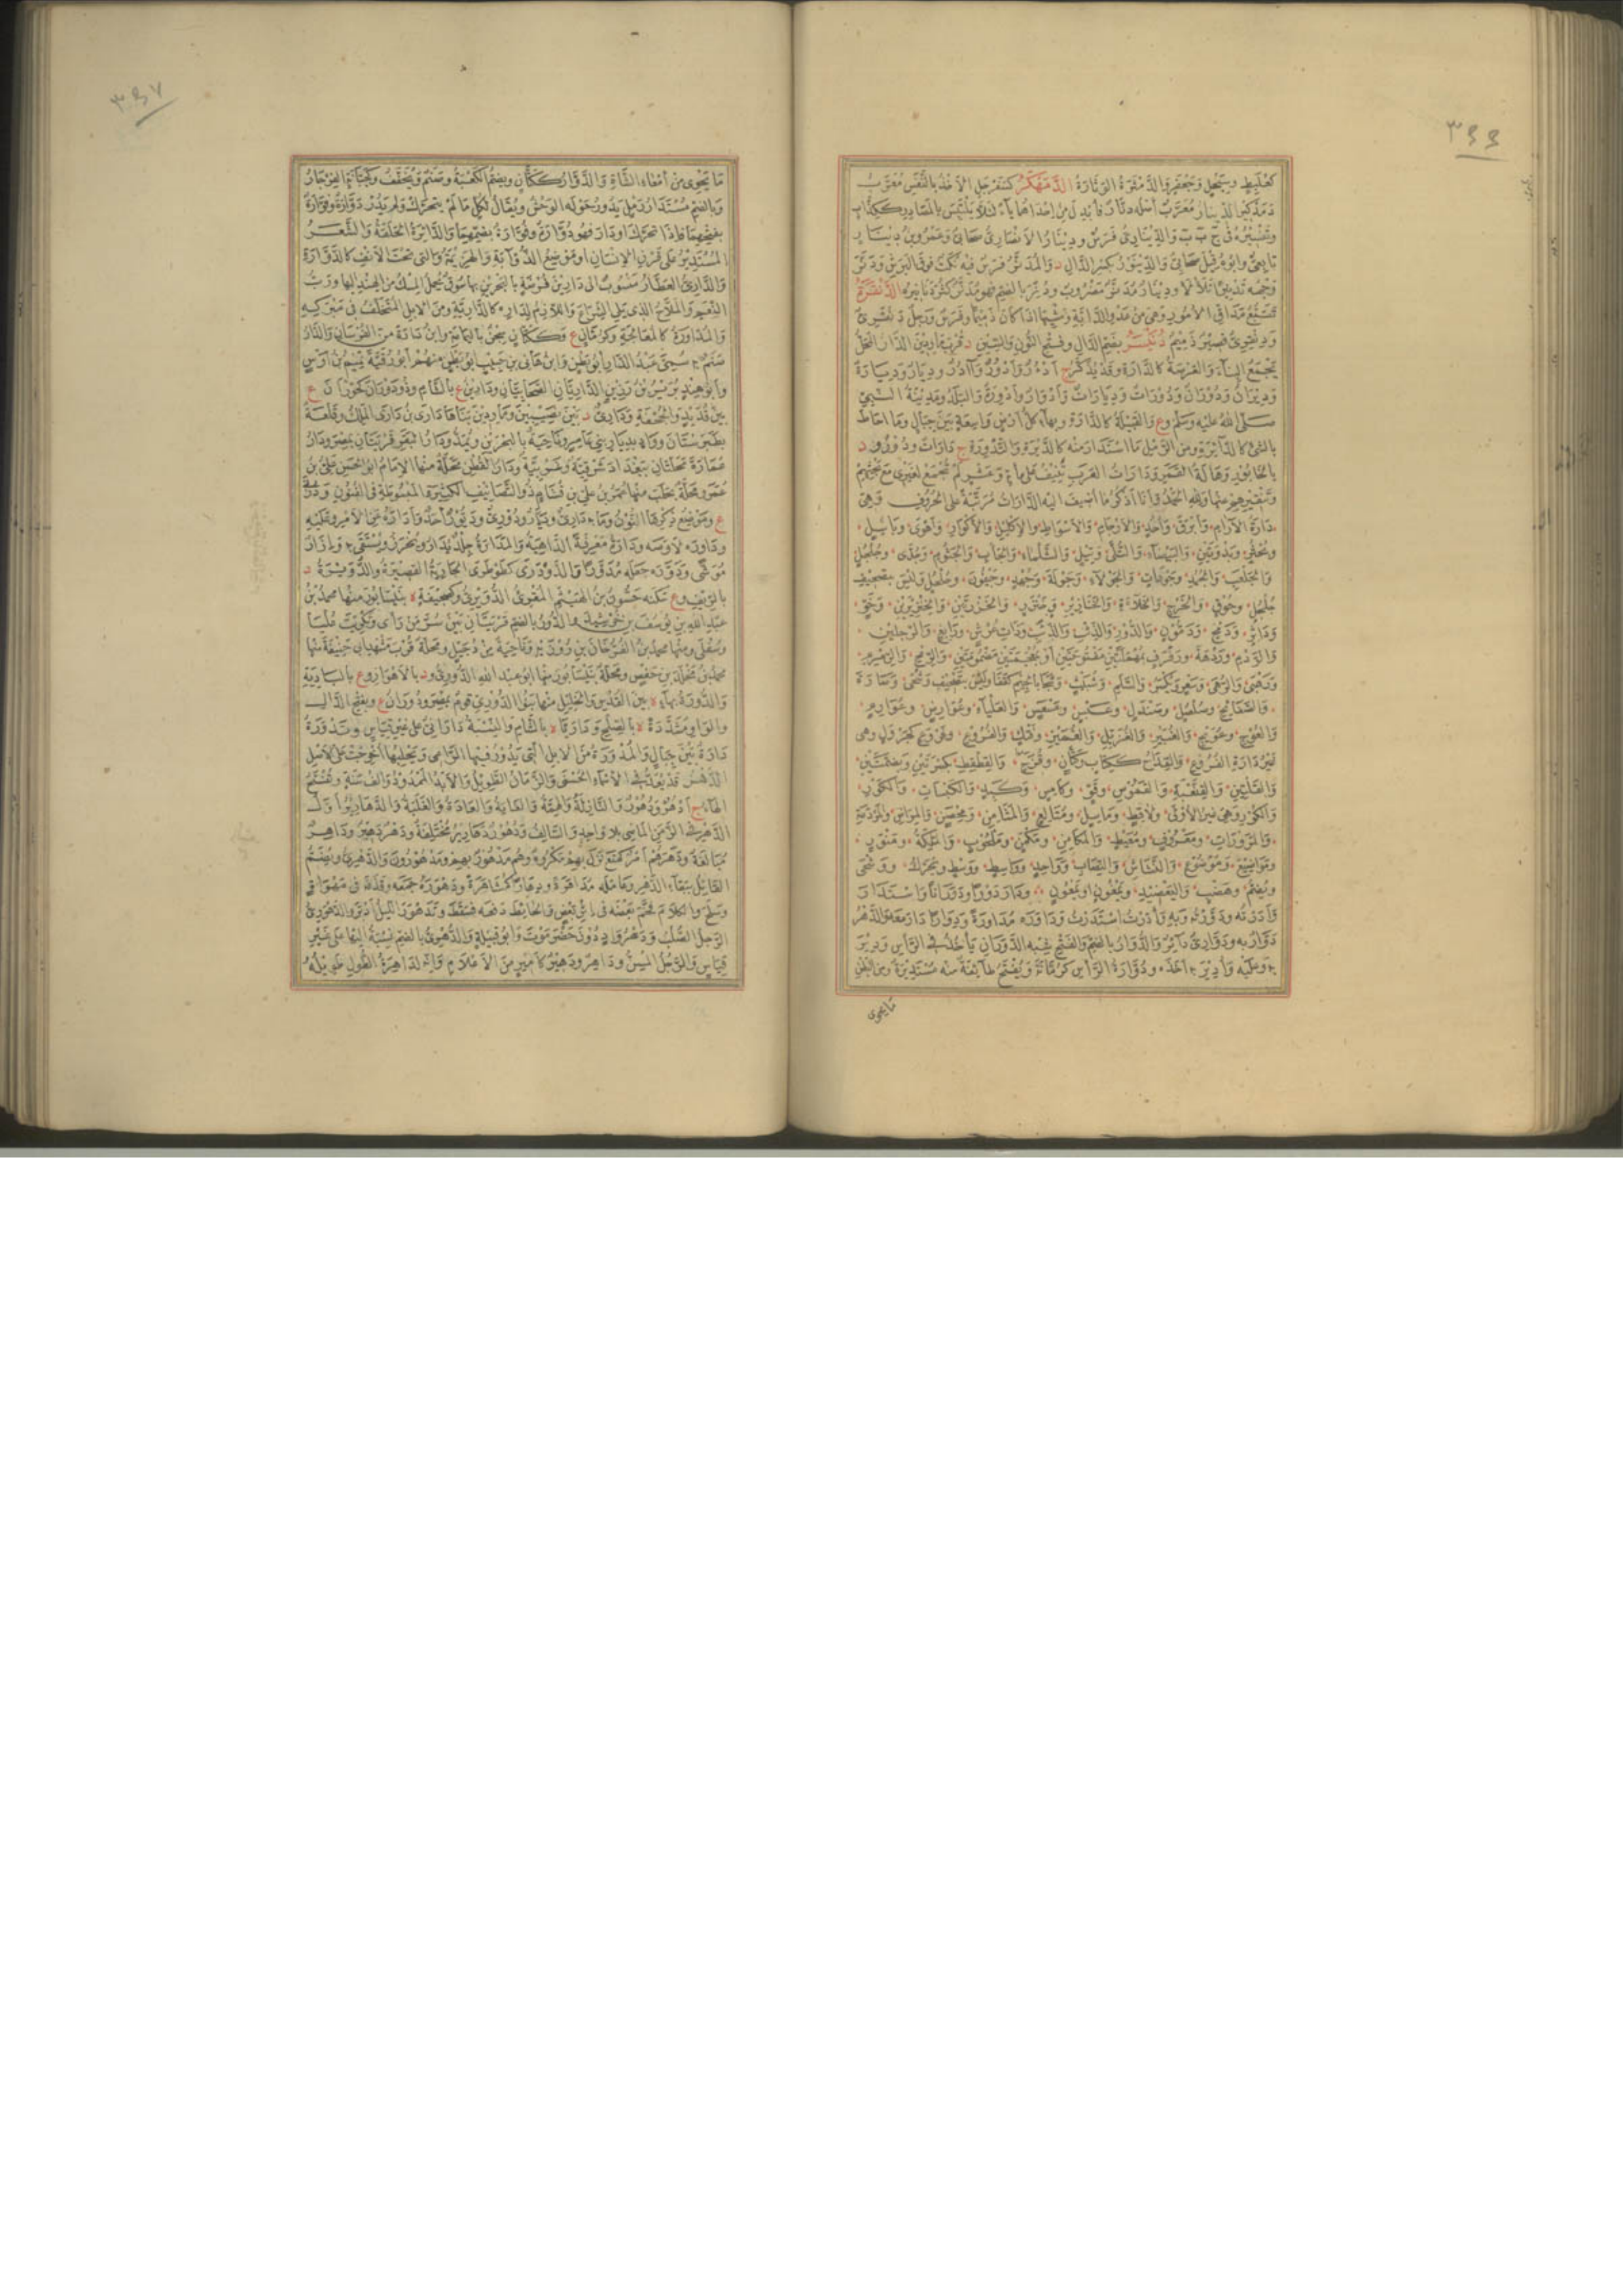 ٣٤٤
كعلبط وسبحل وجعفر والدمقرة الوثارة الدمهكر كسفرجل الاخذ بالنفس معرب
دمه كير الدينار معرب اصله دنار فابدل من احداهما ياء لئلا يلتبس بالمصادر ككذاب
وتفسيره في ج ب ب والديناري فرس ودينار الانصاري صحابي وعمرو بن دينار
تابعي وابوه قيل صحابي والدينور بكسر الدال د والمدنر فرس فيه نكت فوق البرش ودنر
وجهه تدنيرا تلألأ ودينار مدنر مضروب ودنر بالضم فهو مدنر كثر دنانيره الدنقرة
تتبع مداق الامور وهي من عدو الدابة ومشيها اذا كان ذميما وفرس ورجل دنقري
ودنقري قصير ذميم دنيسر بضم الدال وفتح النون والسين د قرب ماردين الدار المحل
يجمع البناء والعرصة كالدارة وقد يذكر ج ادؤر وادور وآدر وديار وديارة
وديران ودوران ودورات وديارات وادوار وادورة والبلد ومدينة النبي
صلى الله عليه وسلم وع والقبيلة كالدارة وبهاء كل ارض واسعة بين جبال وما احاط
بالشئ كالدائرة ومن الرمل ما استدار منه كالديرة والتدورة ج دارات ودور ود
بالخابور وهالة القمر ودارات العرب تنيف على مائة وعشر لم تجمع لغيري مع بحثهم
وتنقيرهم عنها ولله الحمد وانا اذكر ما اضيف اليه الدارات مرتبة على الحروف وهي
دارة الآرام وابرق واحد والارحام والاسواط والاكليل والاكوار واهوى وباسل
وبحثر وبدوتين والبيضاء والتلى وتيل والثلماء والجاب والجثوم وجدى وجلجل
والجلعب والجمد وجودات والجولاء وجولة وجهد وجيفون وحلحل وليس بتصحيف
جلجل وحوق والخرج والخلاءة والخنازير وخنزر والخنزرتين والخنزيرين وخو
وداثر ودمخ ودمون والدور والذئب والذئب وذات عرش ورابغ والرجلين
والردم وردهة ورفرف بمهملتين مفتوحتين او بمعجمتين مضمومتين والرمح والرمرم
ورهبى والرهى وسعر ويكسر والسلم وشبيث
والصفائح وصلصل وصندل وعبس وعسعس والعلياء وعوارض وعوارم
والعوج وعويج والغبير والغزيل والغمير وفتك والفروع وفروع كجرول وهي
غير دارة الفروع والقداح ككتاب وكتان وقرح والقطقط بكسرتين وبضمتين
والقلتين والقنعبة والقموص وقو وكامس وكبد والكبسات والكور
والكور وهي غير الاولى ولاقط وماسل ومتالع والمثامن ومحصر والمراض والمردمة
والمرورات ومعروف ومعيط والمكامن ومكمن وملحوب والملكة ومنور
ومواضيع وموضوع والنشاش والنصاب وواحد وواسط ووسط ويحرك ووشحى
ويضم وهضب واليعضيد ويمغون او يمعون ودار دورا ودورانا واستدار
وادرته ودورته وبه وادرت استدرت وداوره مداورة ودوارا دار معه والدهر
دوار به ودواري دائر والدوار بالضم والفتح شبه الدوران ياخذ في الرأس ودير
به وعليه وادير به اخذه ودوارة الرأس كرمانة ويفتح طائفة منه مستديرة ومن البطن
ما يحوى
٣٤٧
ما يحوى من امعاء الشاة والدوار ككتان وبضم الكعبة وصنم ويخفف وكجبانة الفرجار
وبالضم مستدار رمل يدور حوله الوحش ويقال لكل ما لم يتحرك ولم يدر دوارة وفوارة
بفتحهما فاذا تحرك او دار فهو دوارة وفوارة بضمهما والدائرة الحلقة والشعر
المستدير على قرن الانسان او موضع الذؤابة والهزيمة والتي تحت الانف كالدوارة
والداري العطار منسوب الى دارين فرضة بالبحرين بها سوق يحمل المسك من الهند اليها ورب
النعم والملاح الذي يلي الشراع واللازم لداره كالدارية ومن الابل المتخلف في مبركه
والمداورة كالمعالجة وكرمان ع وككتان سجن باليمامة وابن دارة من الفرسان والدار
صنم به سمي عبد الدار ابو بطن وابن هانئ بن حبيب ابو بطن منهم ابو رقية تميم بن اوس
وابو هند برير بن رزين الداريان الصحابيان ودارين ع بالشام وذو دوران كحوران ع
بين قديد والجحفة ودارى د بين نصيبين وماردين بناها دارى بن دارى الملك وقلعة
بطبرستان وواد بديار بني عامر وناحية بالبحرين ويمد ودار البقر قريتان بمصر ودار
عمارة محلتان ببغداد شرقية وغربية ودار القطن محلة منها الامام ابو الحسن علي بن
عمر ومحلة بحلب منها عمر بن علي بن قشام ذو التصانيف الكثيرة المبسوطة في الفنون
ع وموضع ذكرها النون وما به داري وديار ودوري وديور احد واداره عن الامر وعليه
وداوره لاوصه ودارة معرفة الداهية والمدارة جلد يدار ويخرز ويستقى به وازار
موشى ودوره جعله مدورا والدودرى كطوطرى الجارية القصيرة والدويرة د
بالريف وع سكنه حسون بن الهيثم المقرئ الدويري وكجهينة ة بنيسابور منها محمد بن
عبد الله بن يوسف بن خرشيد والدور بالضم قريتان بين سر من رأى وتكريت عليا
وسفلى ومنها محمد بن الفرخان بن روزبه وناحية من دجيل ومحلة قرب مشهد ابي حنيفة منها
محمد بن مخلد بن حفص ومحلة بنيسابور منها ابو عبد الله الدوري ود بالاهواز وع بالبادية
والدورة بهاء ة بين القدس والخليل منها بنو الدوري قوم بمصر ودوران ع وبفتح الدال
والواو مشددة ة بالصلح وداريا ة بالشام والنسبة داراني على غير قياس وتدورة
دارة بين جبال والمدورة من الابل التي يدور فيها الراعي ويحلبها اخرجت على الاصل
الدهر قد يعد في الاسماء الحسنى والزمان الطويل والابد الممدود والف سنة وتفتح
الهاء ج ادهر ودهور والنازلة والهمة والغاية والعادة والغلبة والدهارير اول
الدهر في الزمن الماضي بلا واحد والسالف ودهور دهارير مختلفة ودهر دهير وداهر
مبالغة ودهرهم امر كمنع نزل بهم مكروه وهم مدهور بهم ومدهورون والدهري ويضم
القائل ببقاء الدهر وعامله مداهرة ودهارا كمشاهرة ودهوره جمعه وقذفه في مهواة
وسلح والكلام فخم بعضه في اثر بعض والحائط دفعه فسقط وتدهور الليل ادبر والدهوري
الرجل الصلب ودهر واد دون حضرموت وابو قبيلة والدهري بالضم نسبة اليها على غير
قياس والرجل المسن وداهر ودهير كامير من الاعلام وانه لداهرة الطول طويله